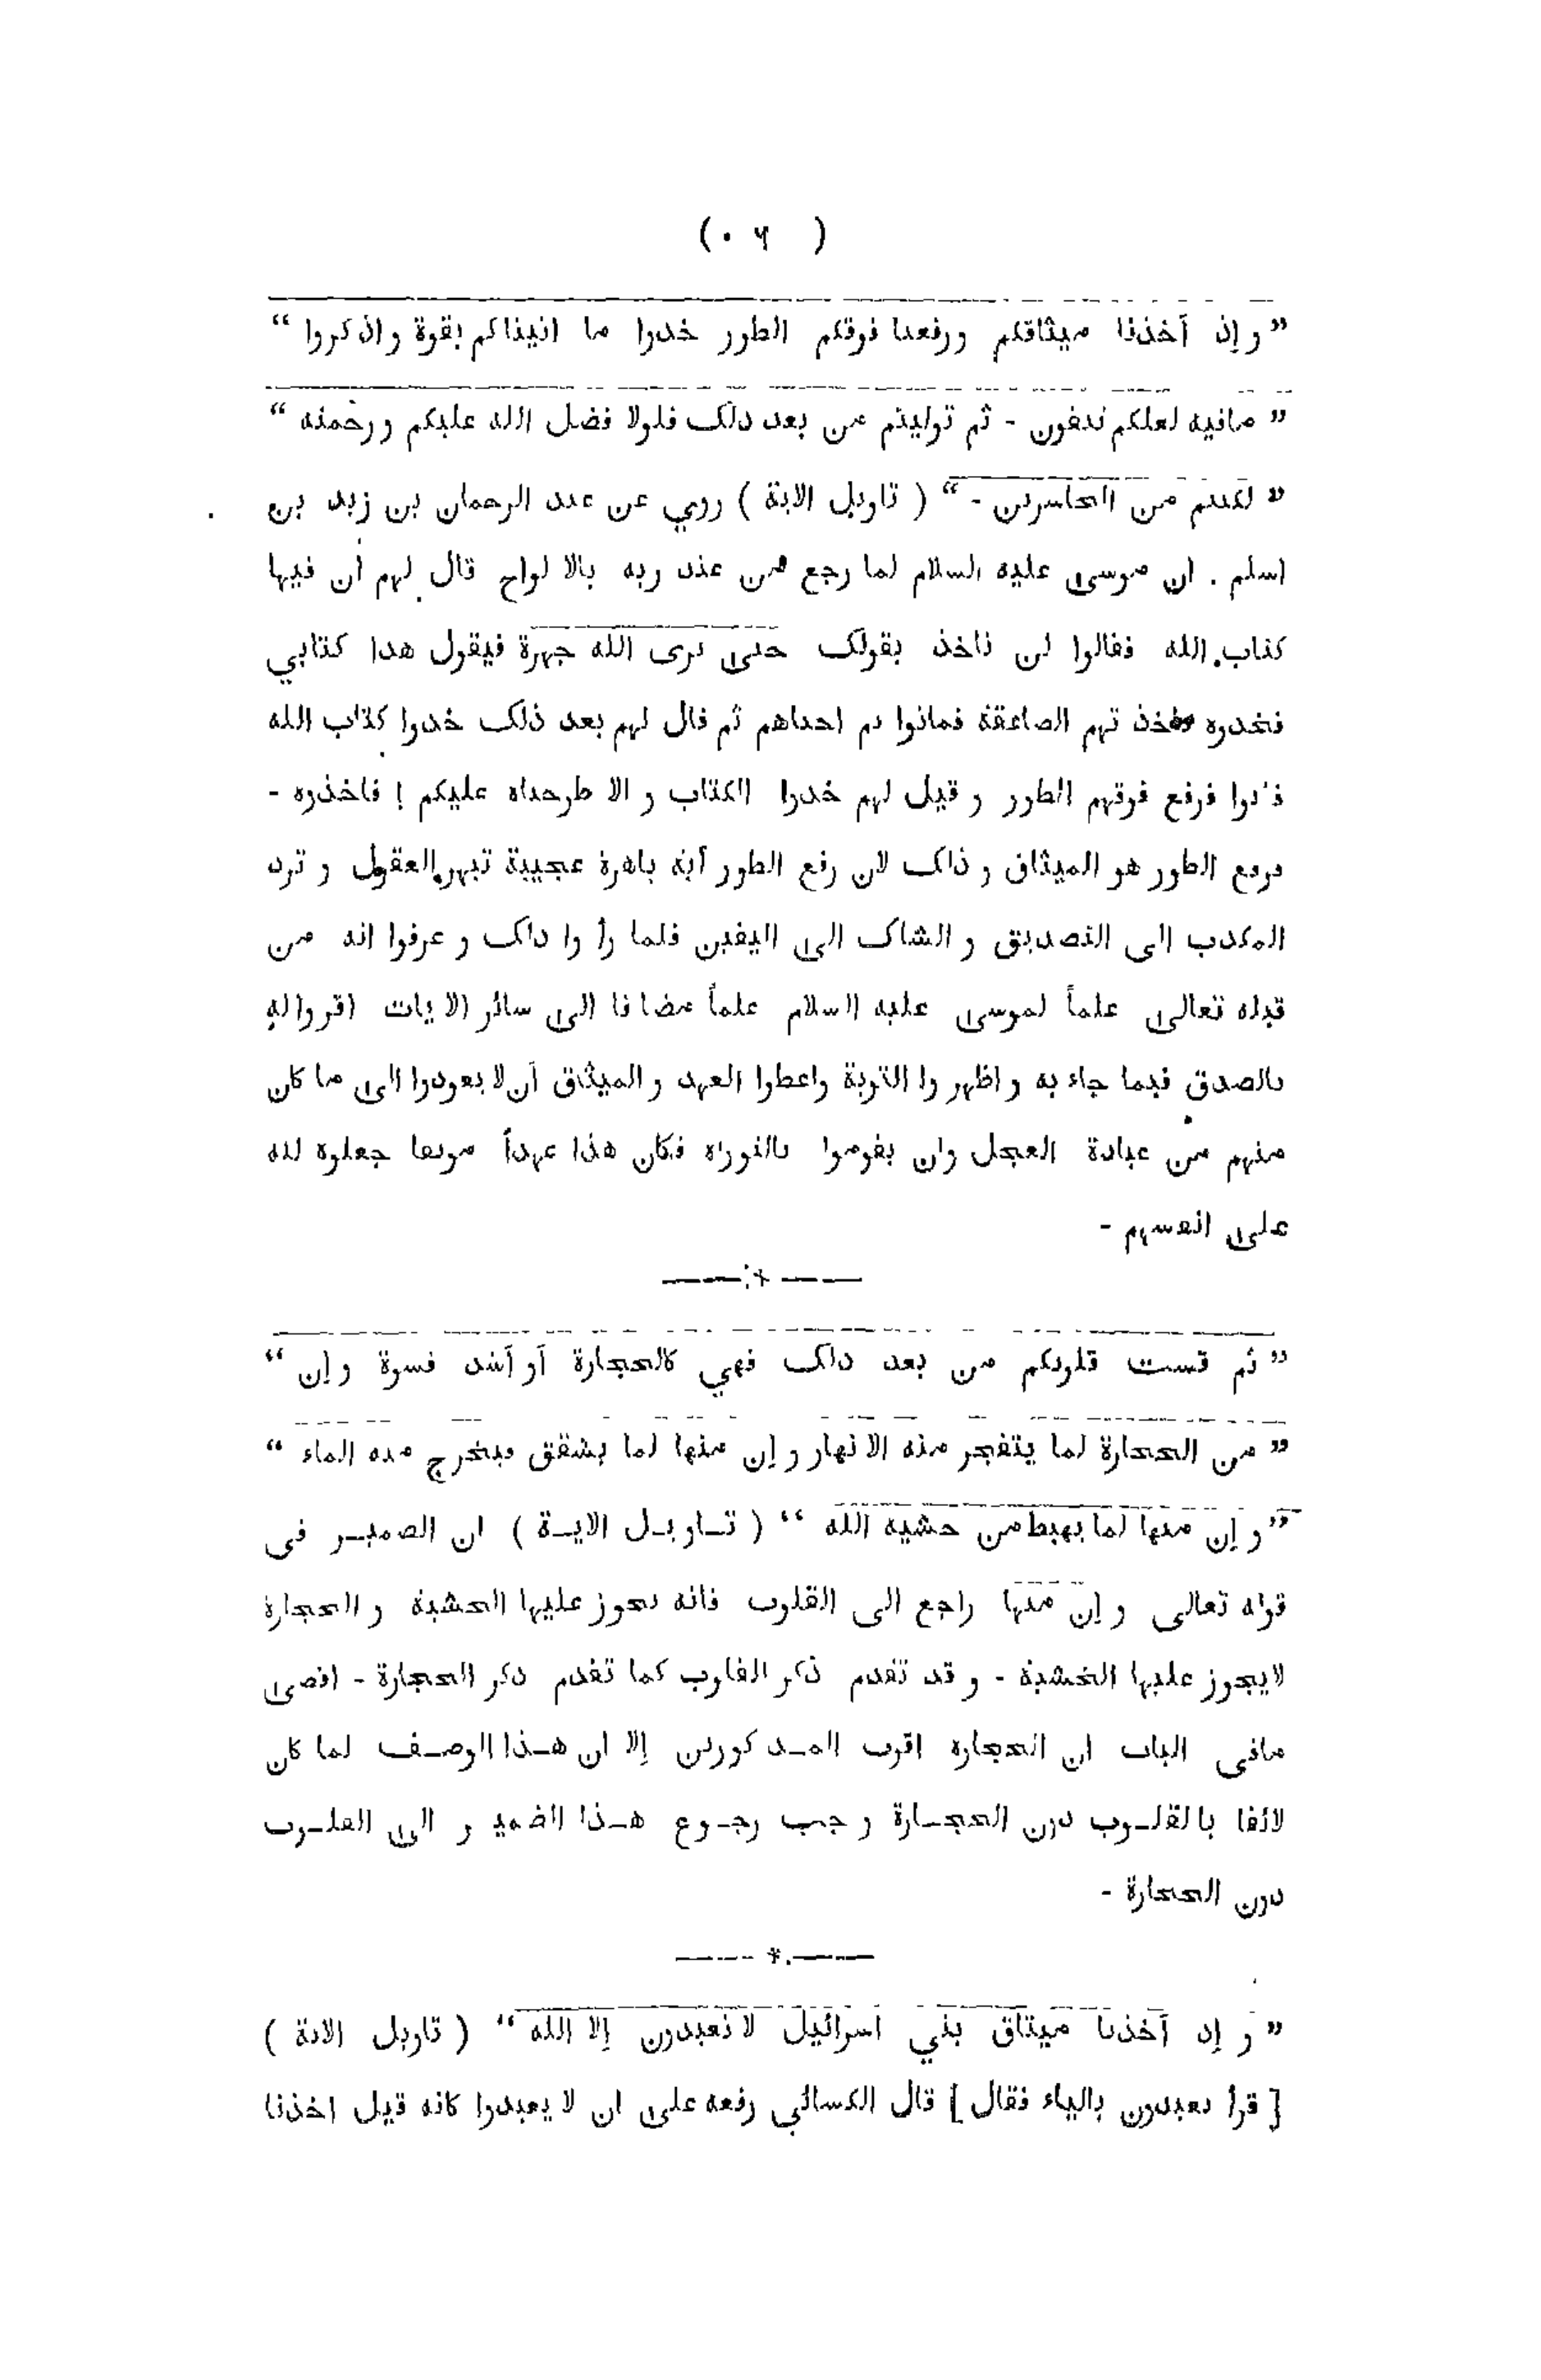 ( ٠٦ )
” وإذ أخذنا ميثاقكم ورفعنا فوقكم الطور خذوا ما اتيناكم بقوة واذكروا “
” مافيه لعلكم تتقون - ثم توليتم من بعد ذلك فلولا فضل الله عليكم ورحمته “
” لكنتم من الخاسرين - “ ( تاويل الاية ) روي عن عبد الرحمان بن زيد بن
اسلم . ان موسى عليه السلام لما رجع من عند ربه بالالواح قال لهم أن فيها
كتاب الله فقالوا لن ناخذ بقولك حتى نرى الله جهرة فيقول هذا كتابي
فخذوه فاخذتهم الصاعقة فماتوا ثم احياهم ثم قال لهم بعد ذلك خذوا كتاب الله
فابوا فرفع فوقهم الطور وقيل لهم خذوا الكتاب والا طرحناه عليكم ! فاخذوه -
فرفع الطور هو الميثاق وذلك لان رفع الطور آية باهرة عجيبة تبهر العقول وترد
المكذب الى التصديق والشاك الى اليقين فلما رأوا ذلك وعرفوا انه من
قبله تعالى علماً لموسى عليه السلام علماً مضافا الى سائر الايات اقروا له
بالصدق فيما جاء به واظهروا التوبة واعطوا العهد والميثاق أن لا يعودوا الى ما كان
منهم من عبادة العجل وان يقوموا بالتوراة فكان هذا عهداً موثقا جعلوه لله
على انفسهم -
” ثم قست قلوبكم من بعد ذلك فهي كالحجارة أو أشد قسوة وإن “
” من الحجارة لما يتفجر منه الانهار وإن منها لما يشقق فيخرج منه الماء “
” وإن منها لما يهبط من خشية الله “ ( تـاويـل الايـة ) ان الضميـر فى
قوله تعالى وإن منها راجع الى القلوب فانه يجوز عليها الخشية والحجارة
لايجوز عليها الخشية - وقد تقدم ذكر القلوب كما تقدم ذكر الحجارة - اقصى
مافى الباب ان الحجارة اقرب المـذكورين إلا ان هـذا الوصـف لما كان
لائقا بالقلـوب دون الحجـارة وجب رجـوع هـذا الضمير الى القلـوب
دون الحجارة -
” وإذ أخذنا ميثاق بني اسرائيل لا تعبدون إلا الله “ ( تاويل الاية )
[ قرأ يعبدون بالياء فقال ] قال الكسائي رفعه على ان لا يعبدوا كانه قيل اخذنا